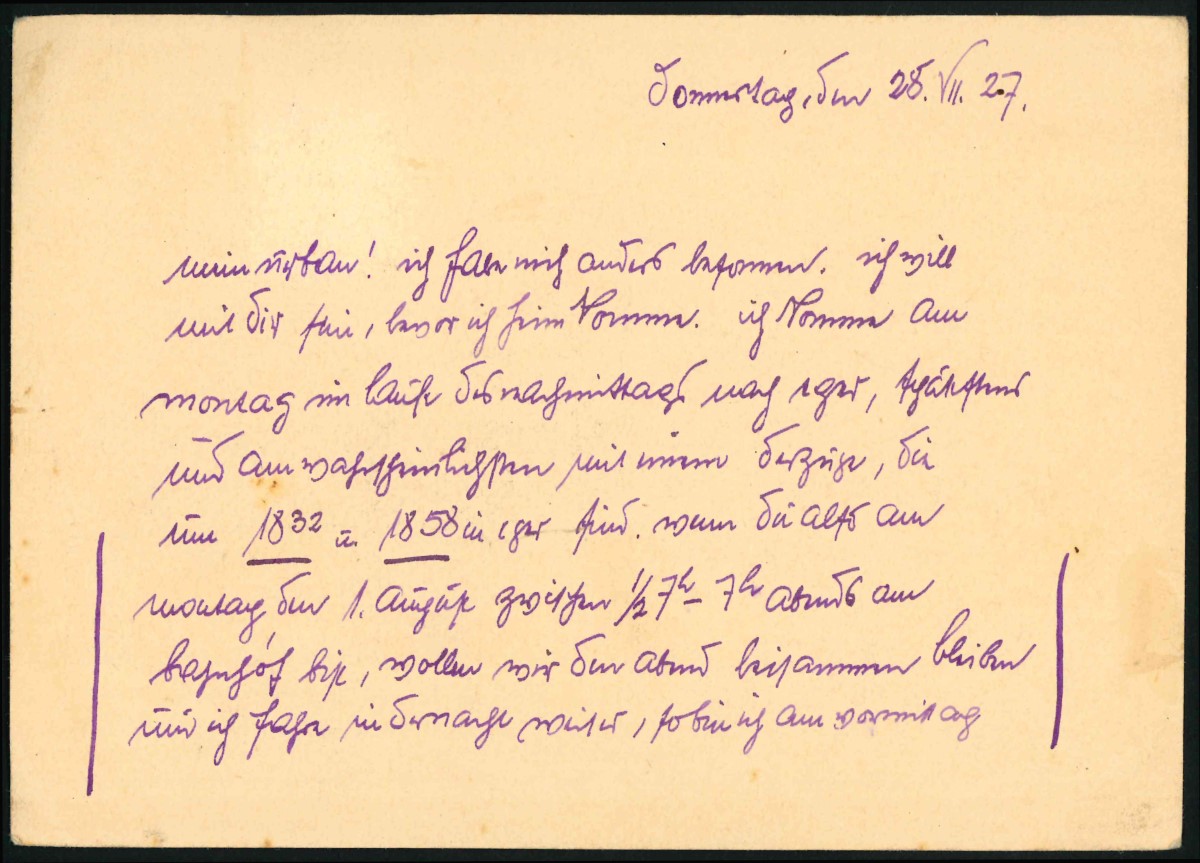 Donnerstag, den 28. VII. 27.
mein urban! ich habe mich anders besonnen. ich will
mit dir sein, bevor ich heim komme. ich komme am
montag im laufe des nachmittags nach eger, spätestens
und am wahrscheinlichsten mit einem der züge, die
um 1832 u. 1858 in eger sind. wenn du also am
montag den 1. august zwischen 1/2 7h – 7h abends am
bahnhof bist, wollen wir den abend beisammen bleiben
und ich fahre in der nacht weiter, so bin ich am vormittag